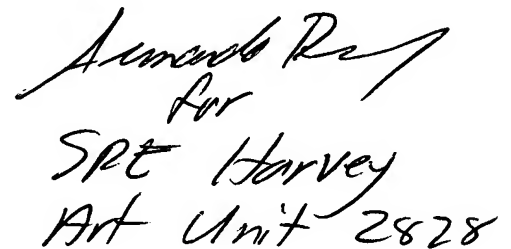 Armando R
for
SPE Harvey
Art Unit 2828